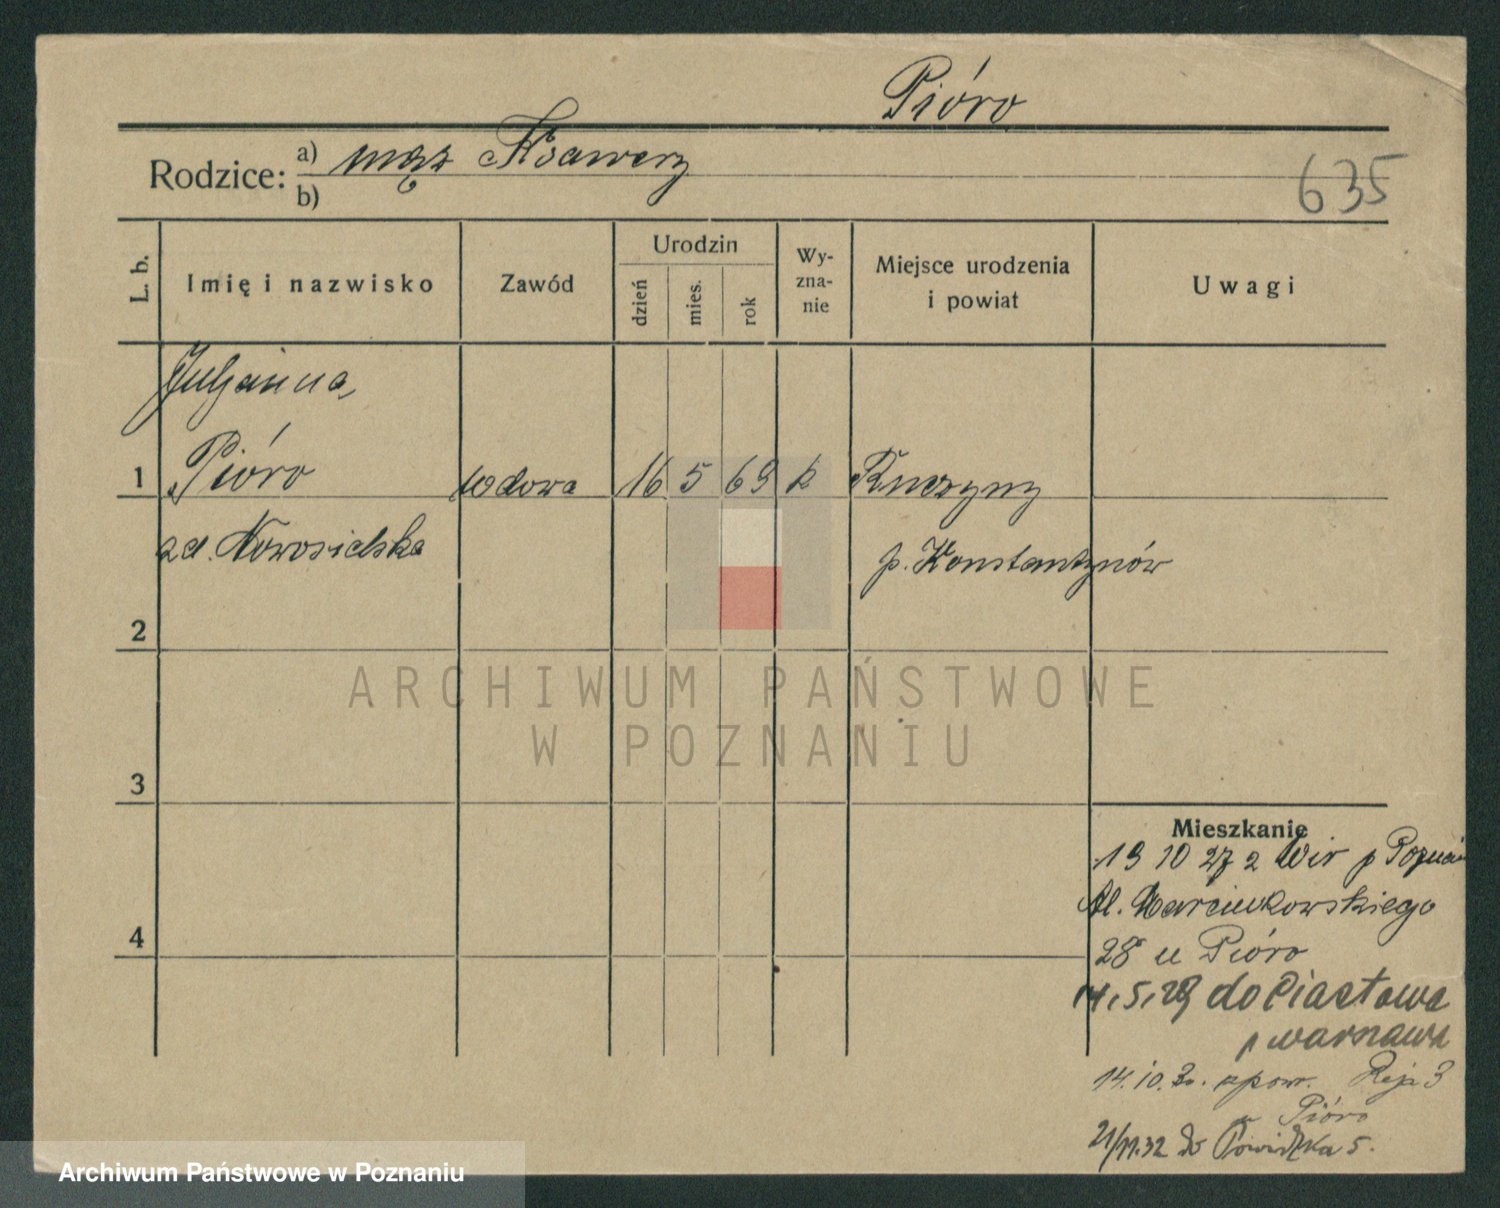 Pióro
Rodzice: a) mąż Ksawery
b)
635
L. b.
Imię i nazwisko
Zawód
Urodzin
dzień
mies.
rok
Wy-
zna-
nie
Miejsce urodzenia
i powiat
Uwagi
Juljanna
1 Pióro wdowa 16 5 69 k Kuczyny
zd. Nowosielska p. Konstantynów
2
ARCHIWUM PAŃSTWOWE
W POZNANIU
3
Mieszkanie
19 10 27 z Wir p Poznań
Al. Marcinkowskiego
4
28 u Pióro
14.5.29 do Piastowa
p warszawa
14.10.30. zpow. Reja 3
u Pióro
21/11.32 do Powidzka 5.
Archiwum Państwowe w Poznaniu